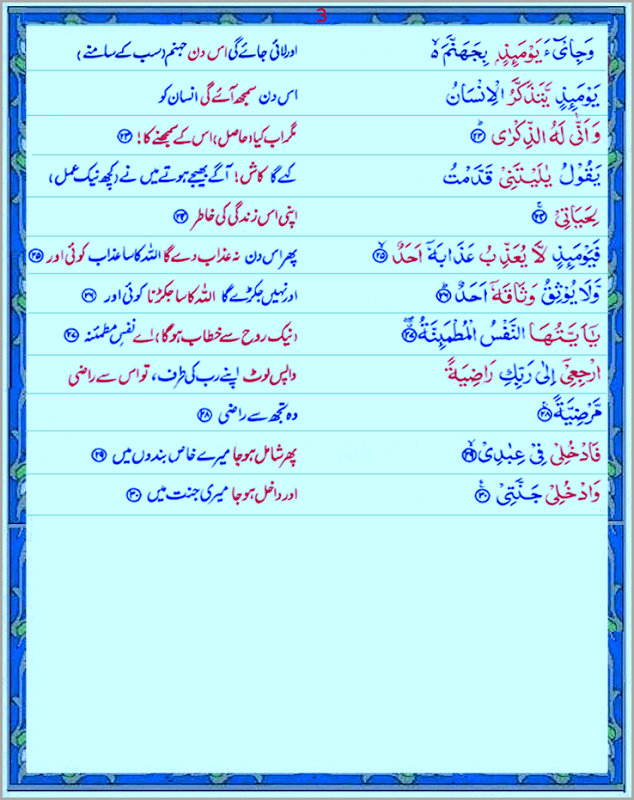 3
وَجِایۡٓءَ یَوۡمَئِذٍۭ بِجَهَنَّمَ ۬ۙ اور لائی جائے گی اس دن جہنم (سب کے سامنے)
یَوۡمَئِذٍ یَّتَذَکَّرُ الۡاِنۡسَانُ اس دن سمجھ آئے گی انسان کو
وَاَنّٰی لَهُ الذِّکۡرٰی ﴿۲۳﴾ مگر اب کیا (حاصل) اس کے سمجھنے کا! ﴿۲۳﴾
یَقُوۡلُ یٰلَیۡتَنِیۡ قَدَّمۡتُ کہے گا کاش! آگے بھیجے ہوتے میں نے (کچھ نیک عمل)
لِحَیَاتِیۡ ﴿ۚ۲۴﴾ اپنی اس زندگی کی خاطر ﴿۲۴﴾
فَیَوۡمَئِذٍ لَّا یُعَذِّبُ عَذَابَهٗۤ اَحَدٌ ﴿ۙ۲۵﴾ پھر اس دن نہ عذاب دے گا اللہ کا سا عذاب کوئی اور ﴿۲۵﴾
وَّلَا یُوۡثِقُ وَثَاقَهٗۤ اَحَدٌ ﴿ؕ۲۶﴾ اور نہیں جکڑے گا اللہ کا سا جکڑنا کوئی اور ﴿۲۶﴾
یٰۤاَیَّتُهَا النَّفۡسُ الۡمُطۡمَئِنَّةُ ﴿۲۷﴾ (نیک روح سے خطاب ہوگا) اے نفسِ مطمئنہ ﴿۲۷﴾
ارۡجِعِیۡۤ اِلٰی رَبِّکِ رَاضِیَةً واپس لوٹ اپنے رب کی طرف، تو اس سے راضی
مَّرۡضِیَّةً ﴿ۚ۲۸﴾ وہ تجھ سے راضی ﴿۲۸﴾
فَادۡخُلِیۡ فِیۡ عِبٰدِیۡ ﴿ۙ۲۹﴾ پھر شامل ہوجا میرے خاص بندوں میں ﴿۲۹﴾
وَادۡخُلِیۡ جَنَّتِیۡ ﴿۳۰﴾ اور داخل ہوجا میری جنت میں ﴿۳۰﴾